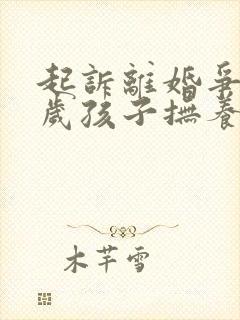 起訴離婚爭
歲孩子撫養
木芊雪